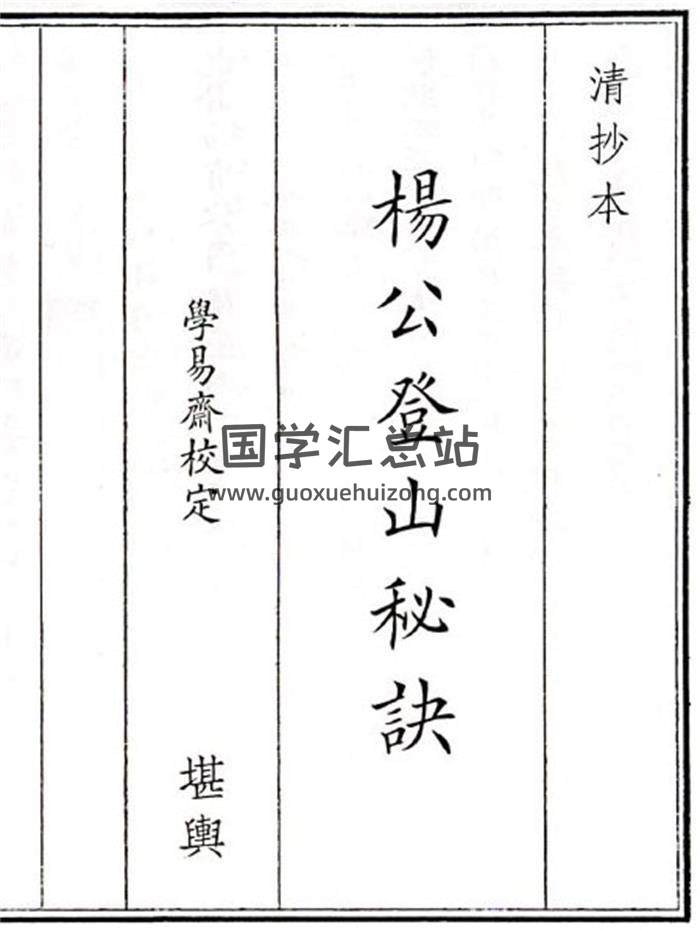 清抄本
楊公登山秘訣
學易齋校定
堪輿
国学汇总站
www.guoxuehuizong.com